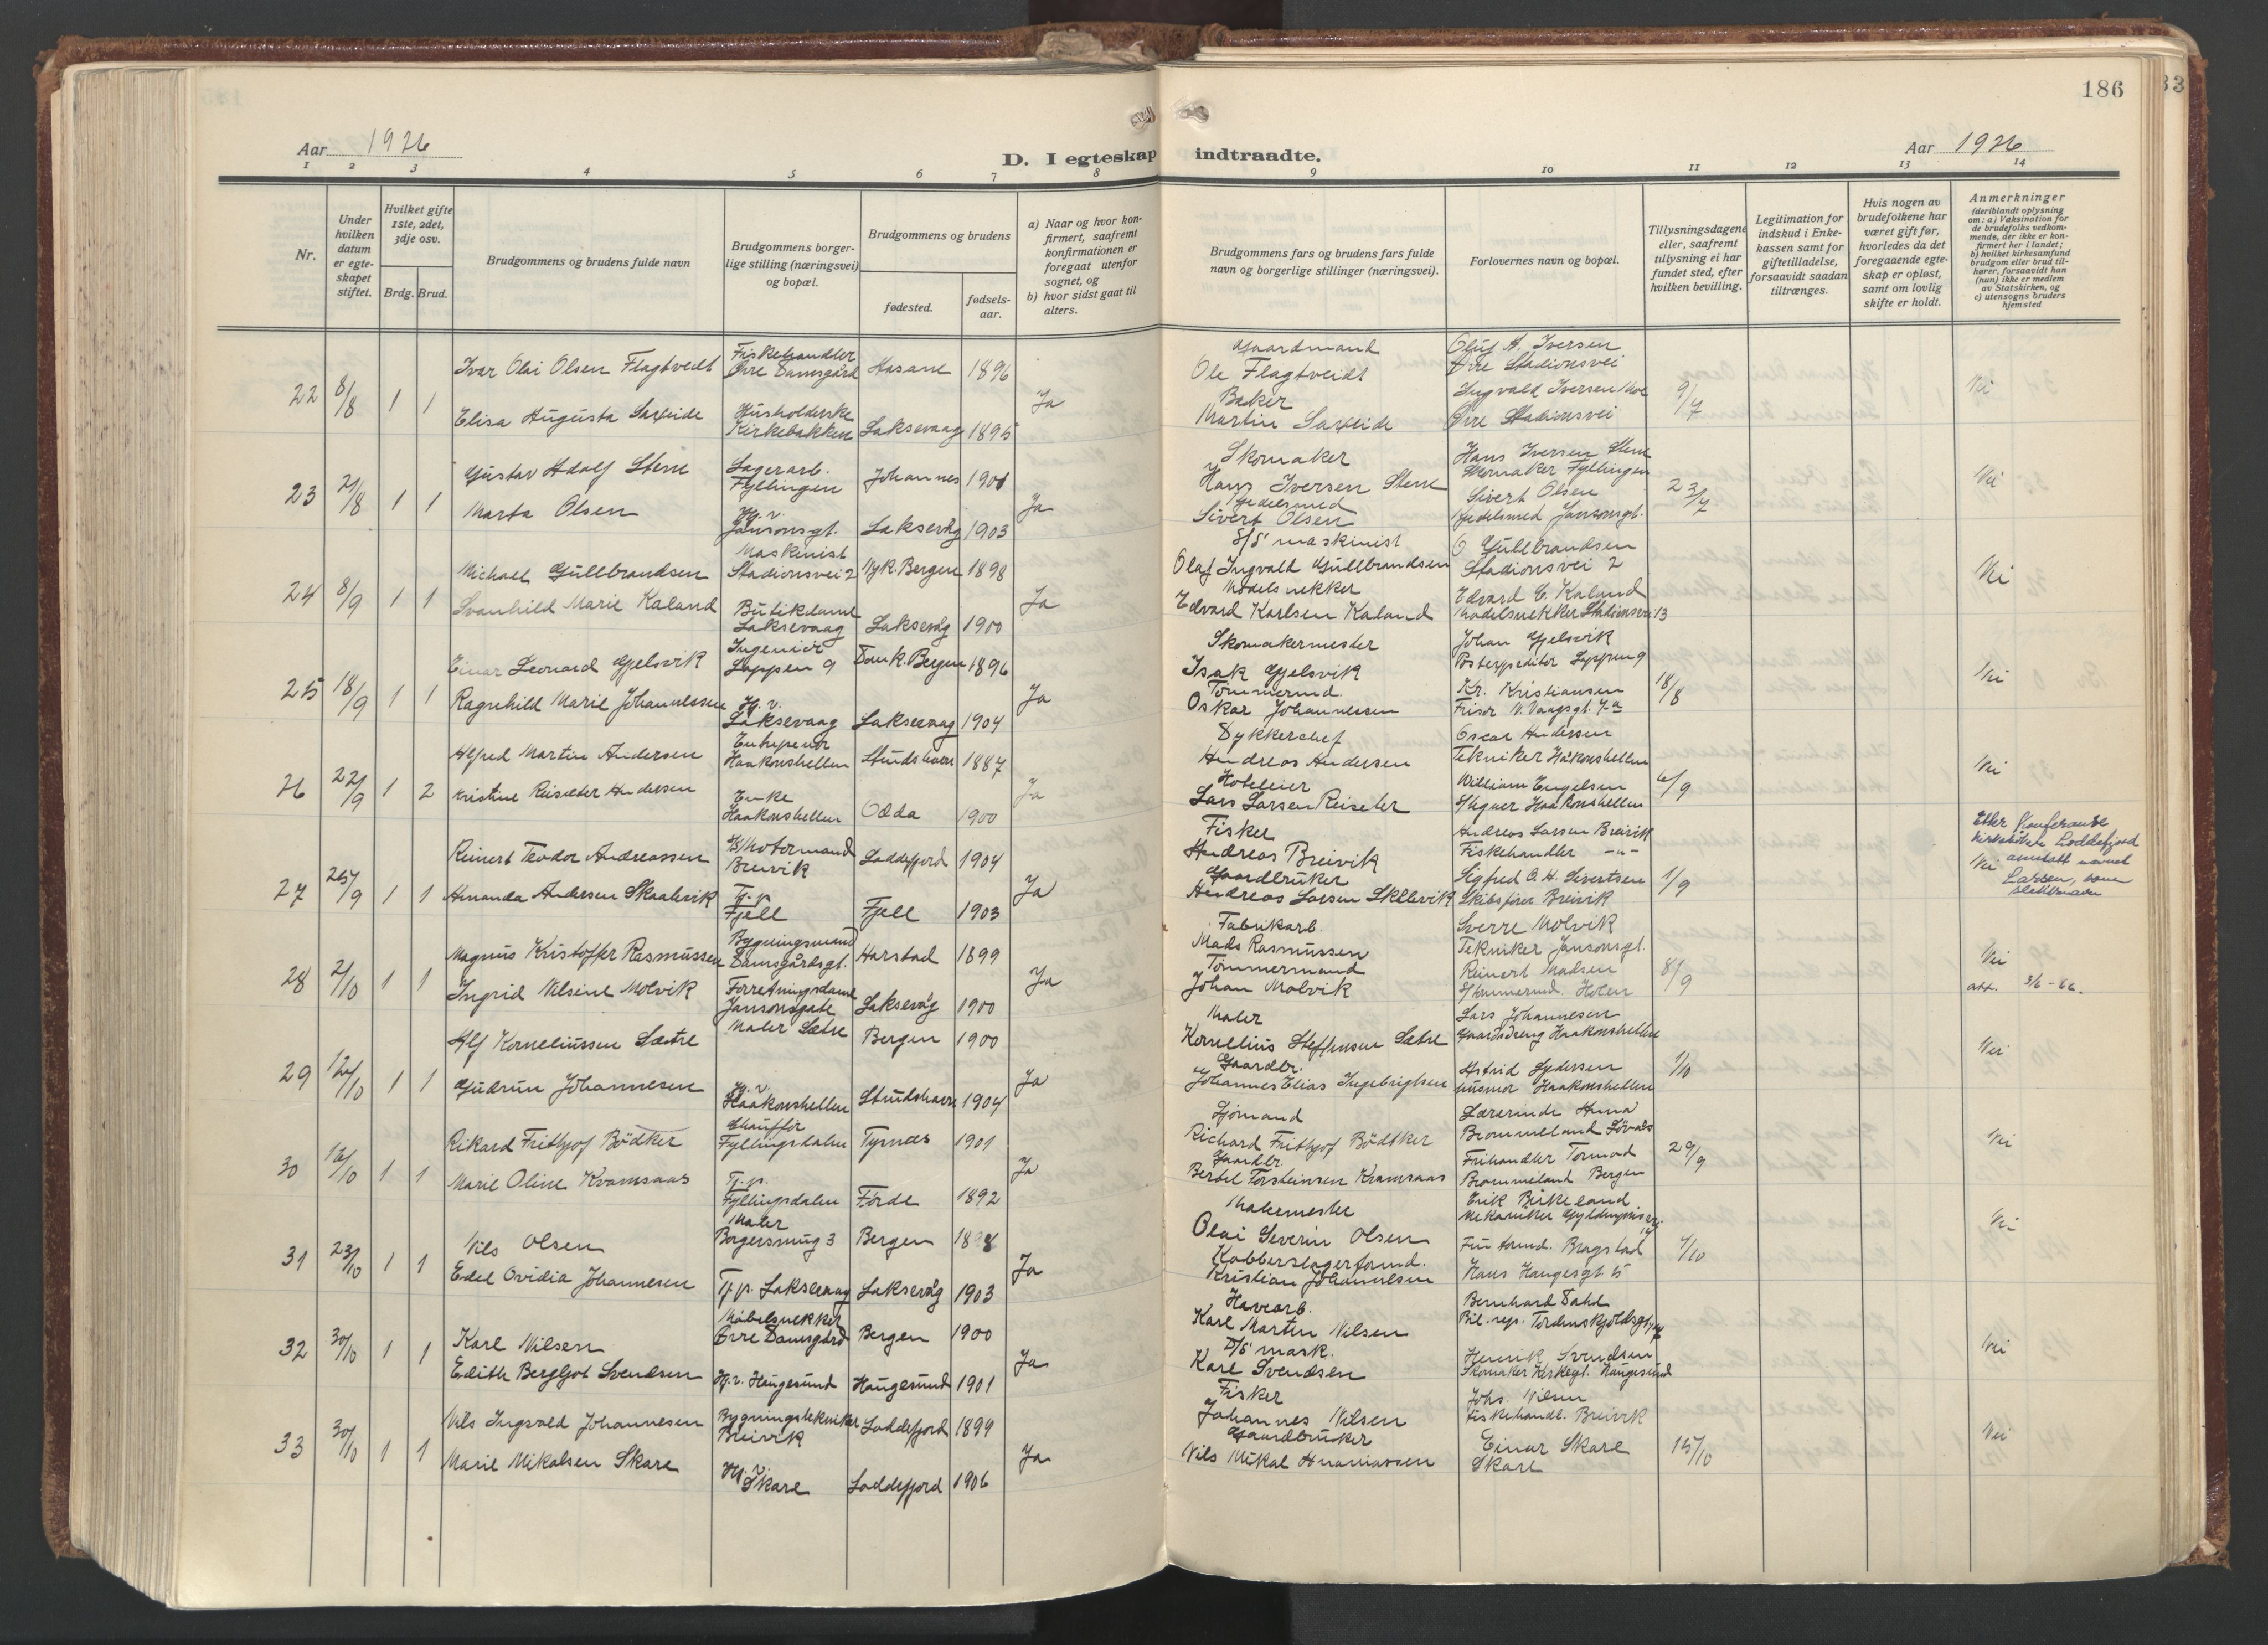 186
33
Aar 1926
D. I egteskap indtraadte.
Aar 1926
1 2 3 4 5 6 7 8 9 10 11 12 13 14
Nr.
Under hvilken datum er egteskapet stiftet.
Hvilket gifte 1ste, 2det, 3dje osv.
Brdg. Brud.
Brudgommens og brudens fulde navn
Brudgommens borgerlige stilling (næringsvei) og bopæl.
Brudgommens og brudens
fødested.
fødselsaar.
a) Naar og hvor konfirmert, saafremt konfirmationen er foregaat utenfor sognet, og
b) hvor sidst gaat til alters.
Brudgommens fars og brudens fars fulde navn og borgerlige stillinger (næringsvei).
Forlovernes navn og bopæl.
Tillysningsdagene eller, saafremt tillysning ei har fundet sted, efter hvilken bevilling.
Legitimation for indskud i Enkekassen samt for giftetilladelse, forsaavidt saadan tiltrænges.
Hvis nogen av brudefolkene har været gift før, hvorledes da det foregaaende egteskap er opløst, samt om lovlig skifte er holdt.
Anmerkninger
(deriblandt oplysning om: a) Vaksination for de brudefolks vedkommende, der ikke er konfirmert her i landet; b) hvilket kirkesamfund brudgom eller brud tilhører, forsaavidt han (hun) ikke er medlem av Statskirken, og c) utensogns bruders hjemsted
22 8/8 1 1 Ivar Olai Olsen Flagtvedt Fiskehandler Øvre Damsgård Hasane 1896 Ja Gaardmand Ole Flagtveidt Oluf A. Iversen Øvre Stadionsvei 9/7 Nei
Elisa Augusta Saxeide Husholderske Kirkebakken Laksevaag 1895 Baker Martin Saxeide Ingvald Iversen Moe Øvre Stadionsvei
23 21/8 1 1 Gustav Adolf Stene Lagerarb. Fyllingen Johannes 1901 Ja Skomaker Hans Iversen Stene Hans Iversen Stene Skomaker Fyllingen 23/7 Nei
Marta Olsen Hj. v. Jansonsgt. Laksevåg 1903 Gjedelsmed Sivert Olsen Sivert Olsen Gjedelsmed Jansonsgt.
24 8/9 1 1 Michael Gullbrandsen Maskinist Stadionsvei 2 Nyk. Bergen 1898 Ja S/S maskinist Olaf Ingvald Gullbrandsen O Gullbrandsen Stadionsvei 2 Nei
Svanhild Marie Kaland Butikdame Laksevaag Laksevåg 1900 Modelsnekker Edvard Karlsen Kaland Edvard C. Kaland Modelsnekker Stadionsvei 13
25 18/9 1 1 Einar Leonard Gjelsvik Ingeniør Leppen 9 Domk. Bergen 1896 Ja Skomakermester Isak Gjelsvik Johan Gjelsvik Postexpeditør Leppen 9 18/8 Nei
Ragnhild Marie Johannessen Hj. v. Laksevaag Laksevaag 1904 Tømmermd. Oskar Johannessen Kr. Kristiansen Frisør N. Vaagsgt. 7a
26 22/9 1 2 Alfred Martin Andersen Entrepenør Haakonshellen Studshavn 1887 Ja Dykkerchef Andreas Andersen Oscar Andersen Tekniker Håkonshellen 6/9 Nei
Kristine Reisæter Andersen Enke Haakonshellen Odda 1900 Hoteleier Lars Larsen Reiseter William Engelsen Haakonshellen
27 25/9 1 1 Reinert Teodor Andreassen Motormand Breivik Loddefjord 1904 Ja Fisker Andreas Breivik Andreas Larsen Breivik Fiskehandler -"- 1/9 Nei
Etter Konferanse kirkebøker Loddefjord anstatt navnet Larsen, som
Amanda Andersen Skaalevik Tj. p. Fjell Fjell 1903 Gaardbruker Andreas Larsen Skålevik Sigfred O. H. Sivertsen Skibsfører Breivik
28 2/10 1 1 Magnus Kristoffer Rasmussen Bygningsmand Damsgårdsgt. Harstad 1899 Ja Fabrikarb. Mads Rasmussen Sverre Molvik Tekniker Jansonsgt. 8/9 Nei
Ingrid Nilsine Molvik Forretningsdame Jansonsgate Laksevåg 1900 Tømmermand Johan Molvik Reinert Madsen Holen att. 3/6-66.
29 12/10 1 1 Alf Korneliussen Sætre Maler Sætre Bergen 1900 Ja Maler Kornelius Steffensen Sætre Lars Johannesen Gaardsdreng Haakonshellen 1/10 Nei
Gudrun Johannesen Hj. v. Haakonshellen Studshavn 1904 Gaardbr. Johannes Elias Ingebrigtsen Astrid Gjdersen husmor Haakonshellen
30 16/10 1 1 Rikard Frithjof Bødtker Chauffør Fyllingsdalen Tysnes 1901 Ja Sjømand Richard Frithjof Bødtker Lærerinde Anna Brommeland Løvås 29/9 Nei
Marie Oline Kvamsaas Tj. p. Fyllingsdalen Førde 1892 Gaardbr. Bertel Torsteinsen Kvamsaas Frihandler Tormod Brommeland Bergen
31 23/10 1 1 Nils Olsen Maler Borgersmug 3 Bergen 1898 Ja Malermester Olai Severin Olsen Erik Birkeland Mekaniker Gyldenprisvei 14 4/10 Nei
Edel Ovidia Johannesen Tj. p. Laksevaag Laksevåg 1903 Kobberslagerformd. Kristian Johannesen Bragstad Hans Haugesgt. 15
32 30/10 1 1 Karl Nilsen Møbelsnekker Øvre Damsgård Bergen 1900 Ja Havearb. Karl Martin Nilsen Bernhard Dahl Bil. rep. Tordenskjoldsgt. Nei
Edith Bergljot Svendsen Hj. v. Haugesund Haugesund 1901 D/S mask. Karl Svendsen Henrik Svendsen Skomaker Kirkegt. Haugesund
33 30/10 1 1 Nils Ingvald Johannesen Bygningstekniker Breivik Loddefjord 1899 Ja Fisker Johannes Nilsen Johs. Nilsen Fiskehandl. Breivik 15/10 Nei
Marie Mikalsen Skare Hj. v. Skare Loddefjord 1906 Gaardbruker Nils Mikal Ananiassen Einar Skare Skare